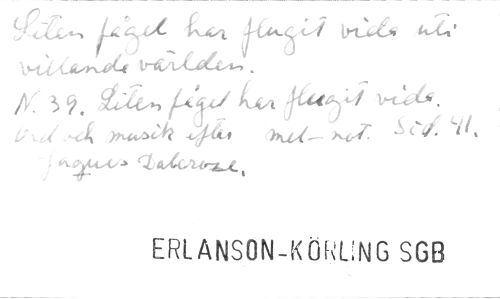 Liten fågel har flugit vida uti
villande världen.
N. 39. Liten fågel har flugit vida.
ord och musik efter mel-not. Sid. 41.
Jaques Dalcroze.
ERLANSON-KÖRLING SGB